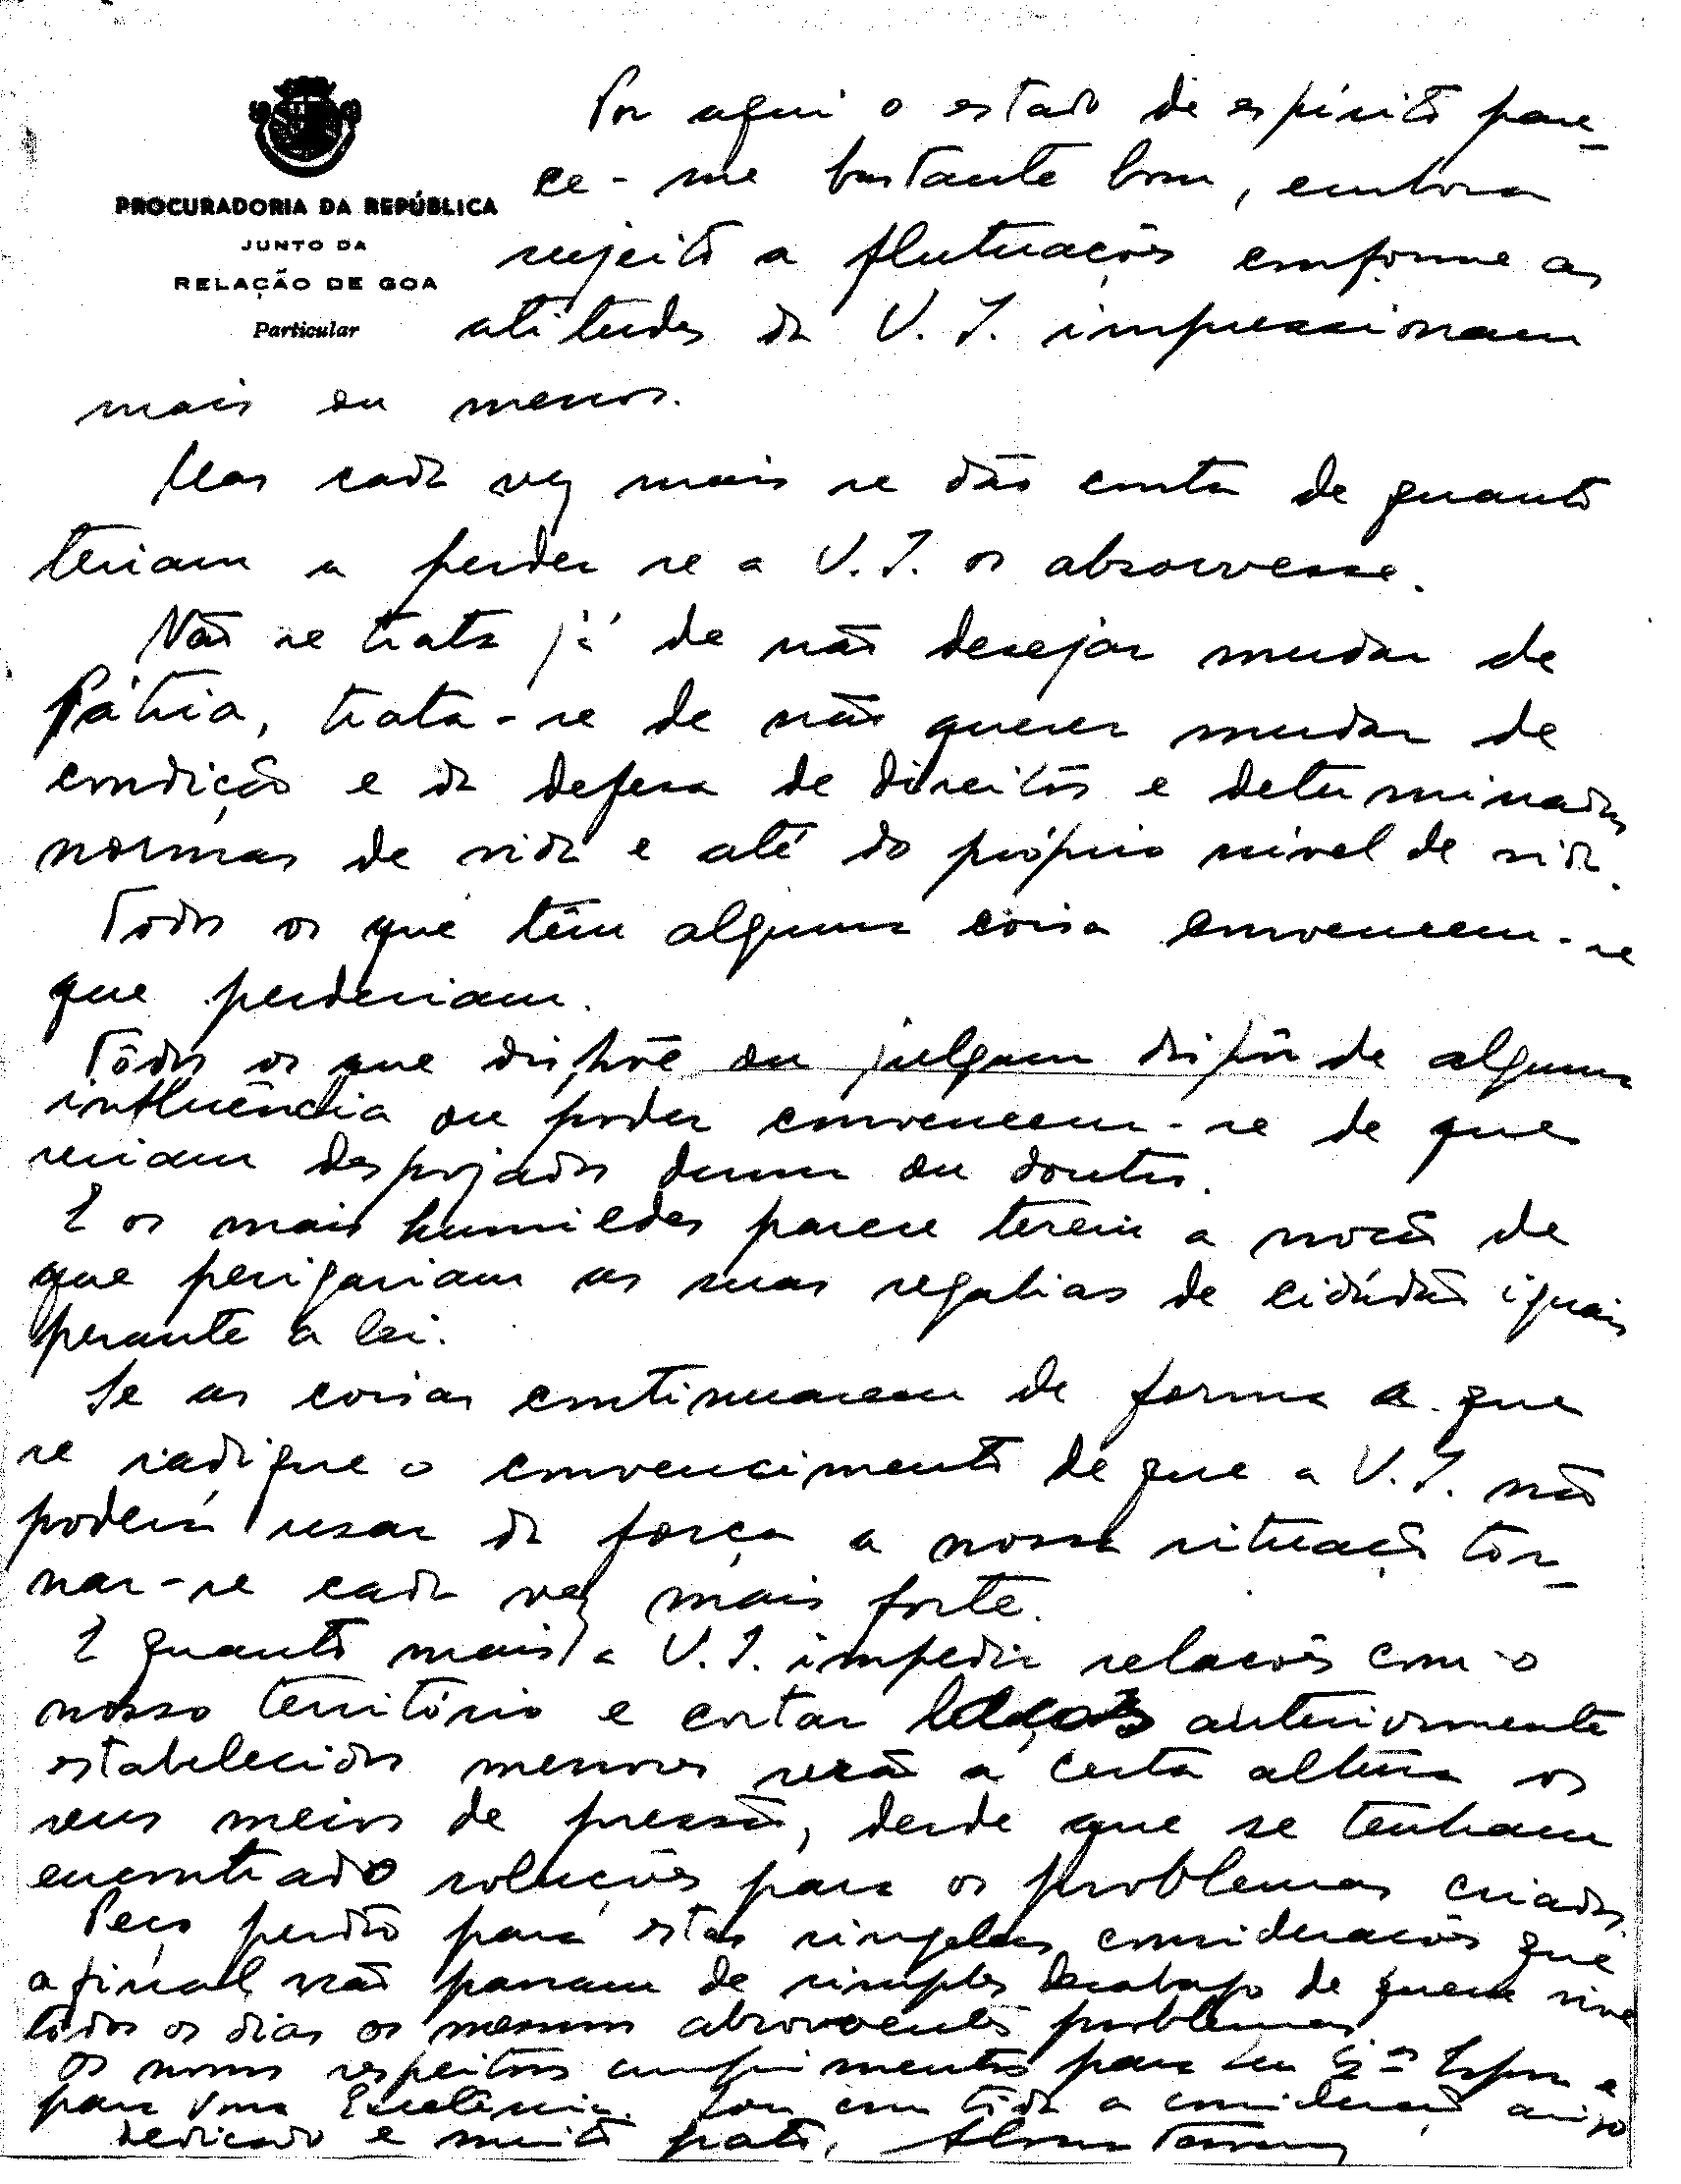 PROCURADORIA DA REPÚBLICA
JUNTO DA
RELAÇÃO DE GOA
Particular
Por aqui o estado de espírito pare-
ce-me bastante bom, embora
sujeito a flutuações conforme as
atitudes da V. I. impressionam
mais ou menos.
Mas cada vez mais se dão conta de quanto
teriam a perder se a V. I. os absorvesse.
Não se trata já de não desejar mudar de
Pátria, trata-se de não querer mudar de
condição e da defesa de direitos e determinadas
normas de vida e até do próprio nível de vida.
Todos os que têm alguma coisa convencem-se
que perderiam.
Tôdos os que dispõe ou julgam dispôr de alguma
influência ou poder convencem-se de que
seriam despojados duma ou doutro.
E os mais humildes parece terem a noção de
que perigariam as suas regalias de cidadão iguais
perante a lei.
Se as coisas continuarem de forma a que
se radique o convencimento de que a V. I. não
poderá usar da força a nossa situação tor-
nar-se cada vez mais forte.
E quanto mais a V. I. impedir relações com o
nosso território e cortar anteriormente
estabelecidos menores serão a certa altura os
seus meios de pressão, desde que se tenham
encontrado soluções para os problemas criados.
Peço perdão para estas singelas considerações que
afinal não passam de simples desabafo de quem vive
todos os dias os mesmos absorventes problemas.
Os nossos respeitosos cumprimentos para Sua Exª Esposa e
para Vossa Excelência. Sou com toda a consideração amigo
dedicado e muito grato,